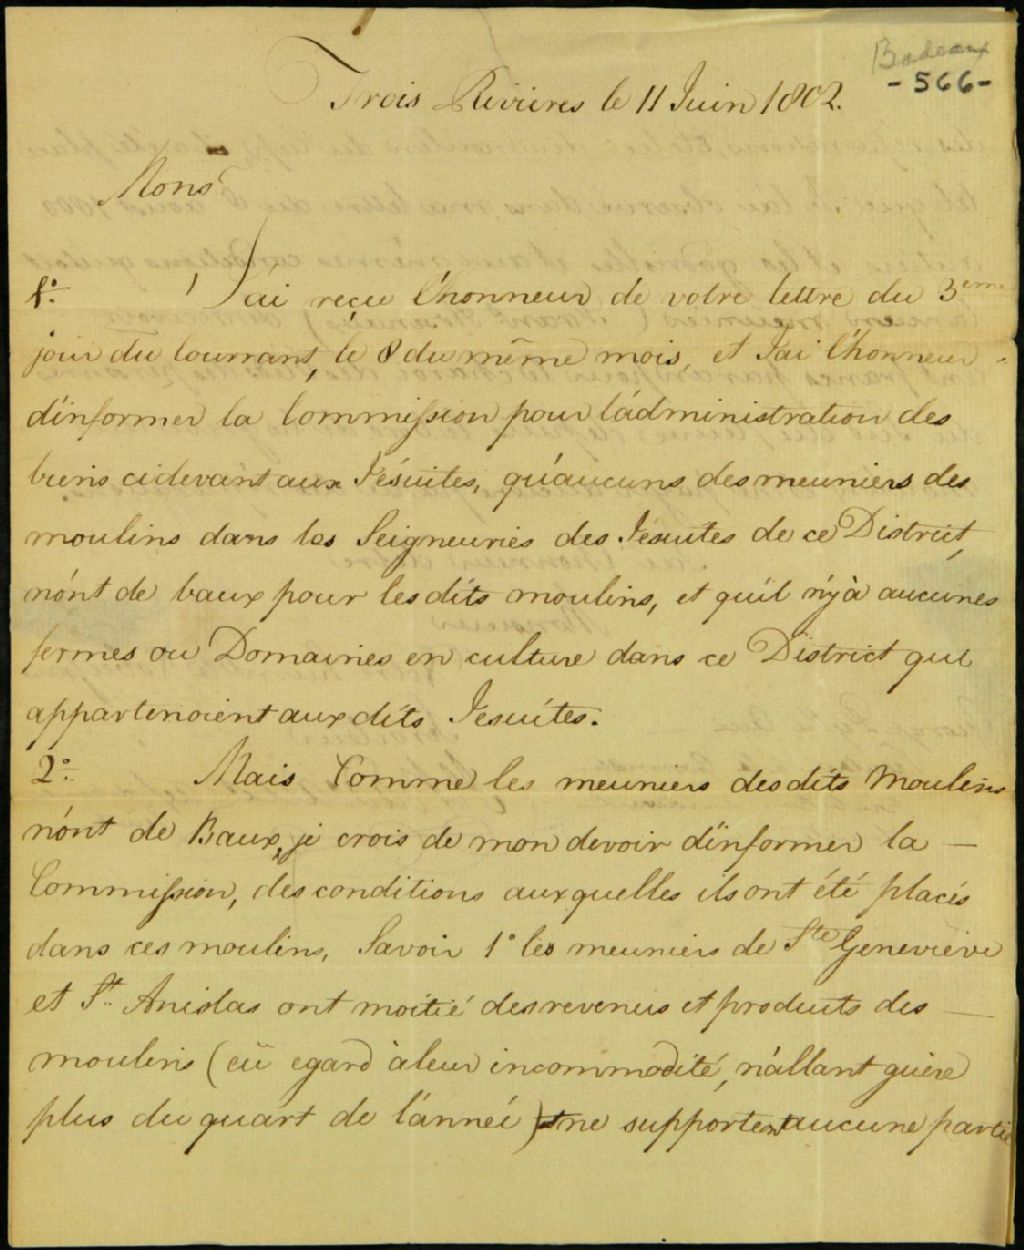 Badeaux
-566-
Trois Rivieres le 11 Juin 1802.
Monsr
1°. J'ai reçu l'honneur de votre lettre du 3eme
jour du Courrant, le 8 du même mois, et J'ai l'honneur
d'informer la Commission pour l'administration des
biens cidevant aux Jésuites, qu'aucuns des meuniers des
moulins dans les Seigneuries des Jésuites de ce District,
n'ont de baux pour lesdits moulins, et qu'il n'y à aucunes
fermes ou Domaines en culture dans ce District qui
appartenoient aux dits Jesuites.
2°. Mais Comme les meuniers desdits Moulins
n'ont de Baux, je crois de mon devoir d'informer la —
Commission, des conditions auxquelles ils ont été placés
dans ces moulins, Savoir 1° les meuniers de Ste Genevieve
et St. Aniolas ont moitié des revenus et produits des —
moulins (eü egard à leur incommodité, n'allant guère
plus du quart de l'année) ne supportent aucune partie